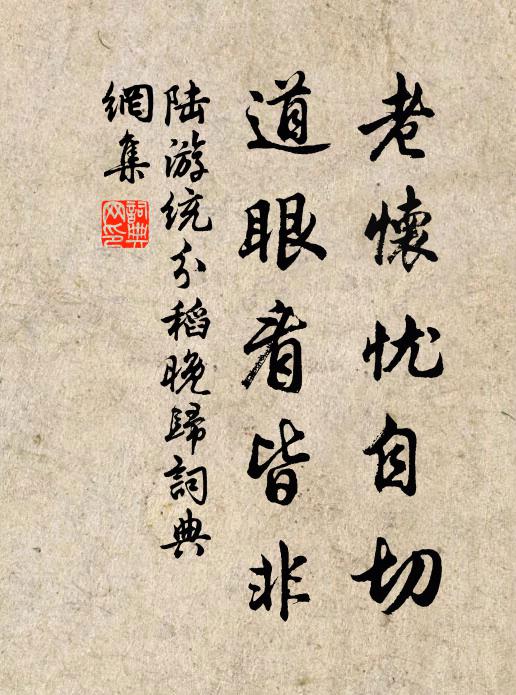 老懷忧自切
道眼看皆非
陆游统分稻晚歸詞典
網集
詞典
网印